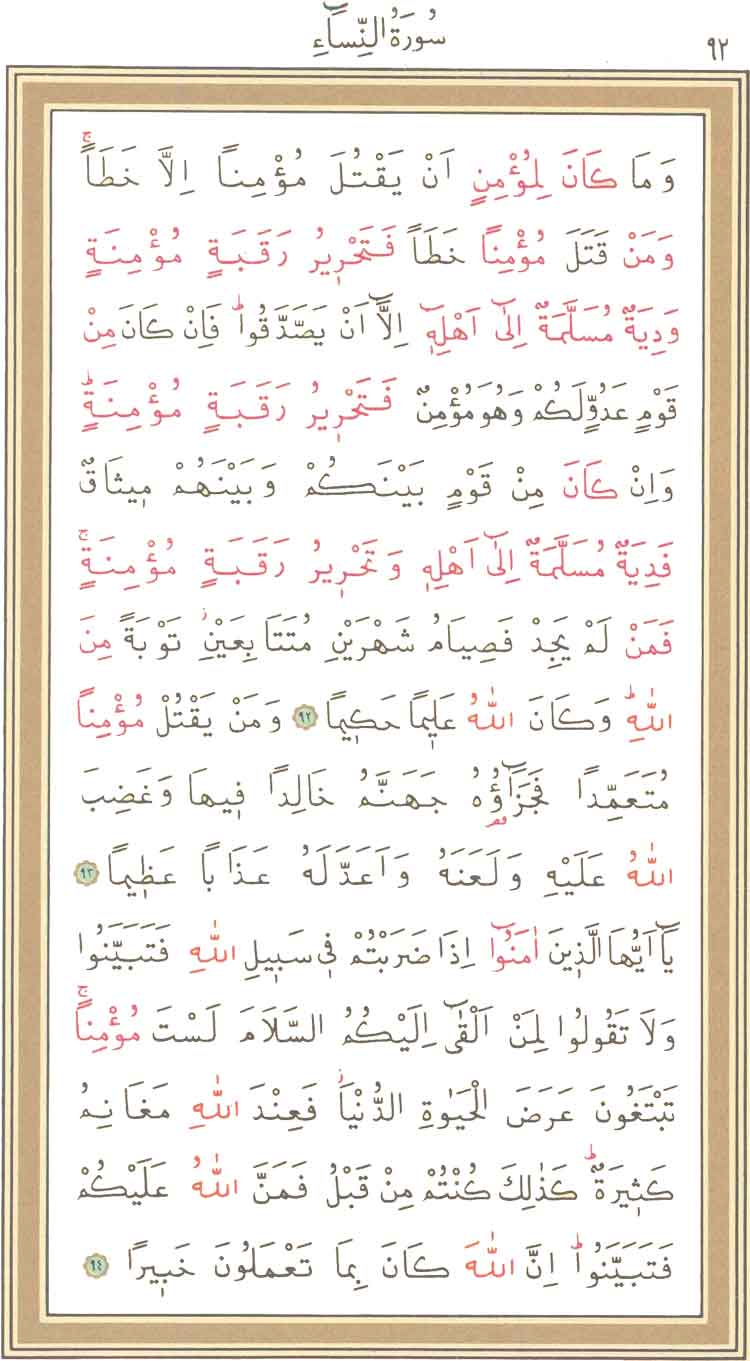 سُورَةُ النِّسَاءِ ٩٢
وَمَا كَانَ لِمُؤْمِنٍ اَنْ يَقْتُلَ مُؤْمِناً اِلَّا خَطَـٔاًۚ
وَمَنْ قَتَلَ مُؤْمِناً خَطَـٔاً فَتَحْر۪يرُ رَقَبَةٍ مُؤْمِنَةٍ
وَدِيَةٌ مُسَلَّمَةٌ اِلٰٓى اَهْلِه۪ٓ اِلَّٓا اَنْ يَصَّدَّقُواۜ فَاِنْ كَانَ مِنْ
قَوْمٍ عَدُوٍّ لَكُمْ وَهُوَ مُؤْمِنٌ فَتَحْر۪يرُ رَقَبَةٍ مُؤْمِنَةٍۜ
وَاِنْ كَانَ مِنْ قَوْمٍ بَيْنَكُمْ وَبَيْنَهُمْ م۪يثَاقٌ
فَدِيَةٌ مُسَلَّمَةٌ اِلٰٓى اَهْلِه۪ وَتَحْر۪يرُ رَقَبَةٍ مُؤْمِنَةٍۚ
فَمَنْ لَمْ يَجِدْ فَصِيَامُ شَهْرَيْنِ مُتَتَابِعَيْنِۘ تَوْبَةً مِنَ
اللّٰهِۜ وَكَانَ اللّٰهُ عَل۪يماً حَك۪يماً ٩٢ وَمَنْ يَقْتُلْ مُؤْمِناً
مُتَعَمِّداً فَجَزَٓاؤُ۬هُ جَهَنَّمُ خَالِداً ف۪يهَا وَغَضِبَ
اللّٰهُ عَلَيْهِ وَلَعَنَهُ وَاَعَدَّ لَهُ عَذَاباً عَظ۪يماً ٩٣
يَٓا اَيُّهَا الَّذ۪ينَ اٰمَنُٓوا اِذَا ضَرَبْتُمْ ف۪ي سَب۪يلِ اللّٰهِ فَتَبَيَّنُوا
وَلَا تَقُولُوا لِمَنْ اَلْقٰٓى اِلَيْكُمُ السَّلَامَ لَسْتَ مُؤْمِناًۚ
تَبْتَغُونَ عَرَضَ الْحَيٰوةِ الدُّنْيَاۘ فَعِنْدَ اللّٰهِ مَغَانِمُ
كَث۪يرَةٌۜ كَذٰلِكَ كُنْتُمْ مِنْ قَبْلُ فَمَنَّ اللّٰهُ عَلَيْكُمْ
فَتَبَيَّنُواۜ اِنَّ اللّٰهَ كَانَ بِمَا تَعْمَلُونَ خَب۪يراً ٩٤